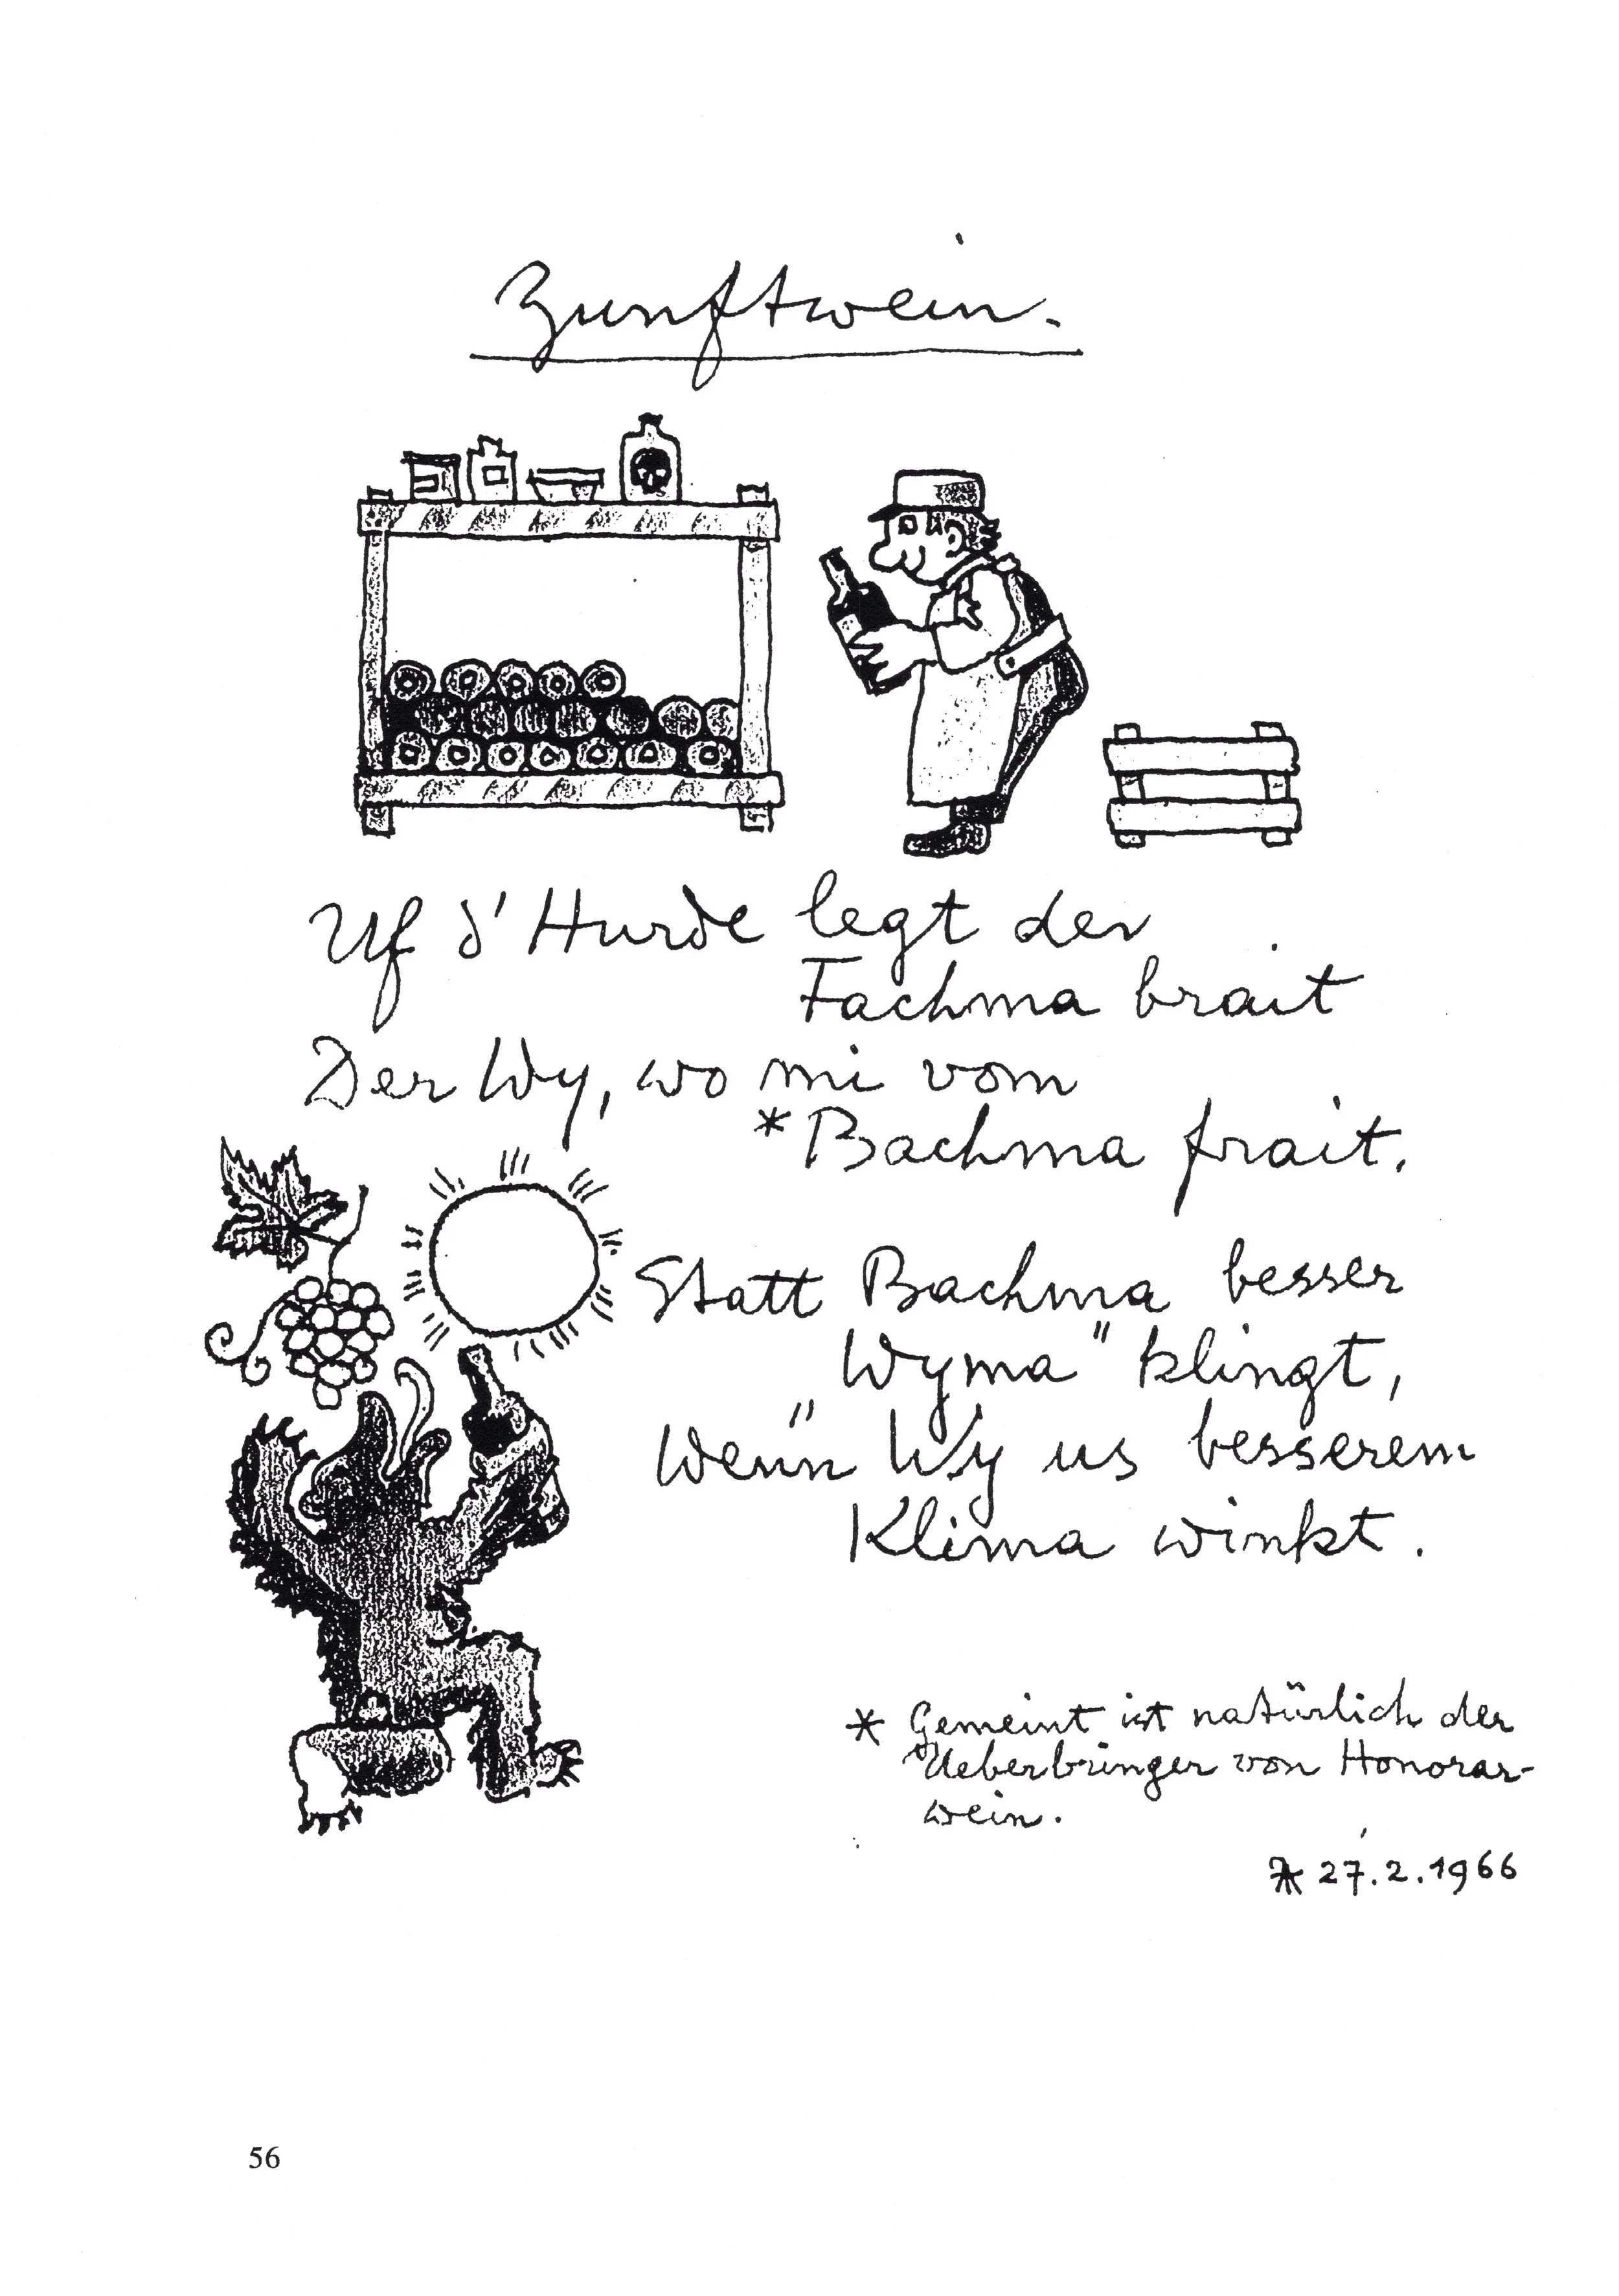 Zunftwein.
Uf d' Hurde legt der
Fachma brait
Der Wy, wo mi vom
*Bachma frait.
Statt Bachma besser
"Wyma" klingt,
Wenn Wy us besserem
Klima winkt.
* Gemeint ist natürlich der
Ueberbringer von Honorar-
wein.
27.2.1966
56